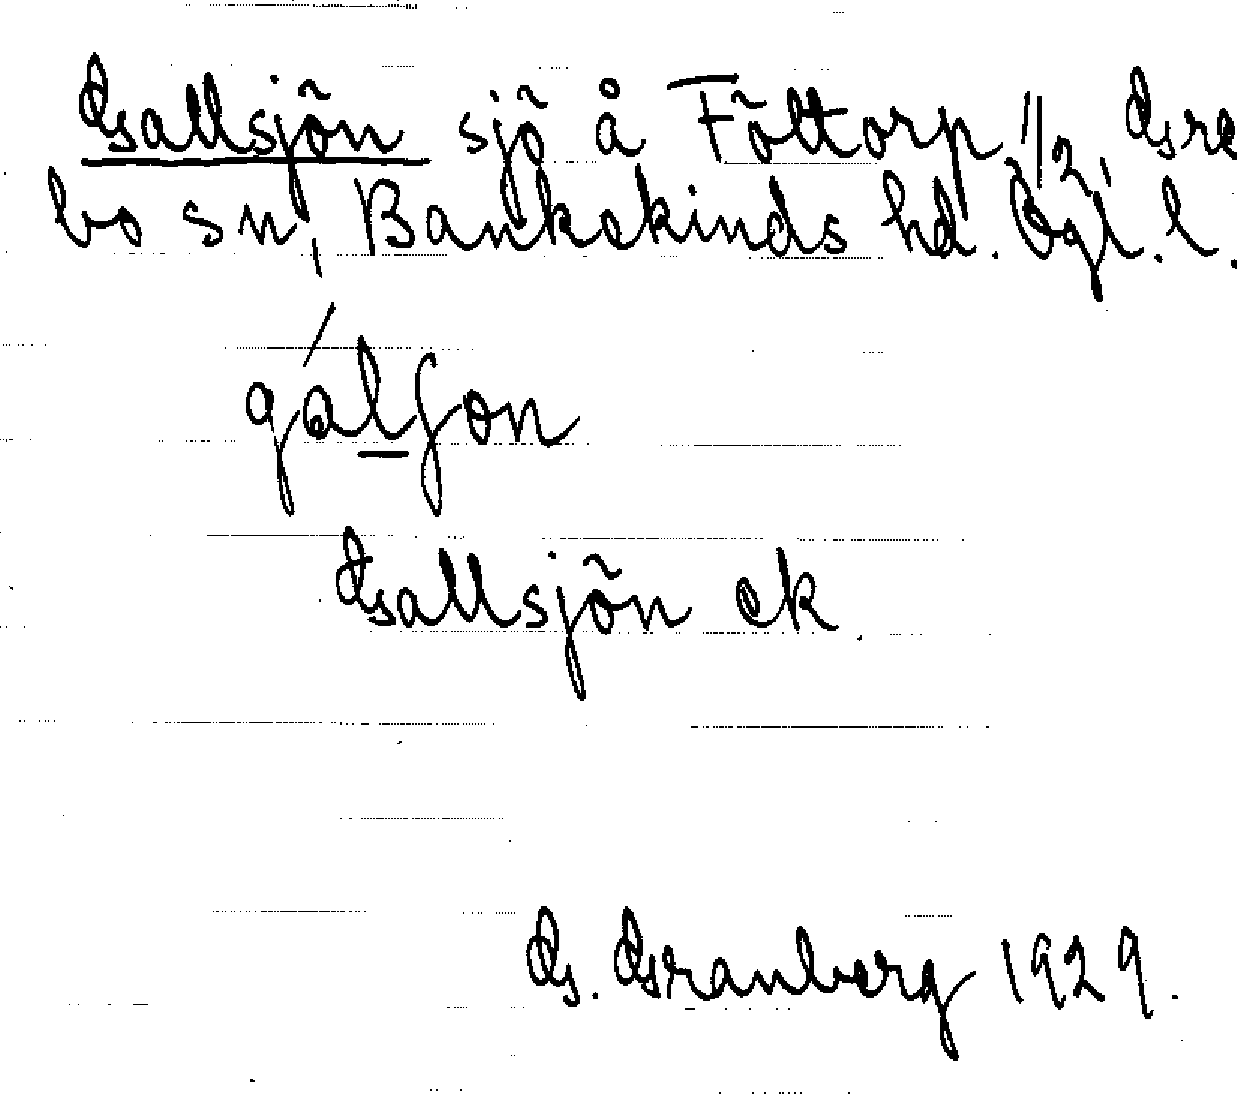 Gallsjön sjö å Föttorp, 1/2, Gre
bo sn, Bankekinds hd. Ögl. l.
gálʃon
Gallsjön ek.
G. Granberg 1929.